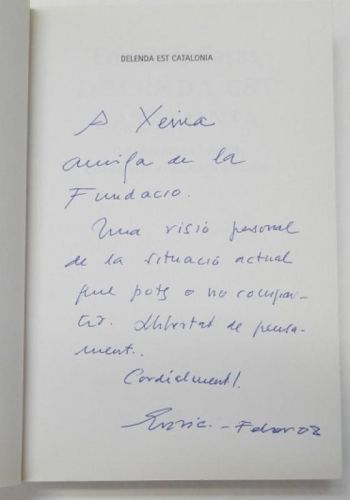 DELENDA EST CATALONIA
A Xeina
amiga de la
Fundació.
Una visió personal
de la situació actual
que pots o no compar-
tir. Llibertat de pensa-
ment..
Cordialment!
Enric. - Febrer 08